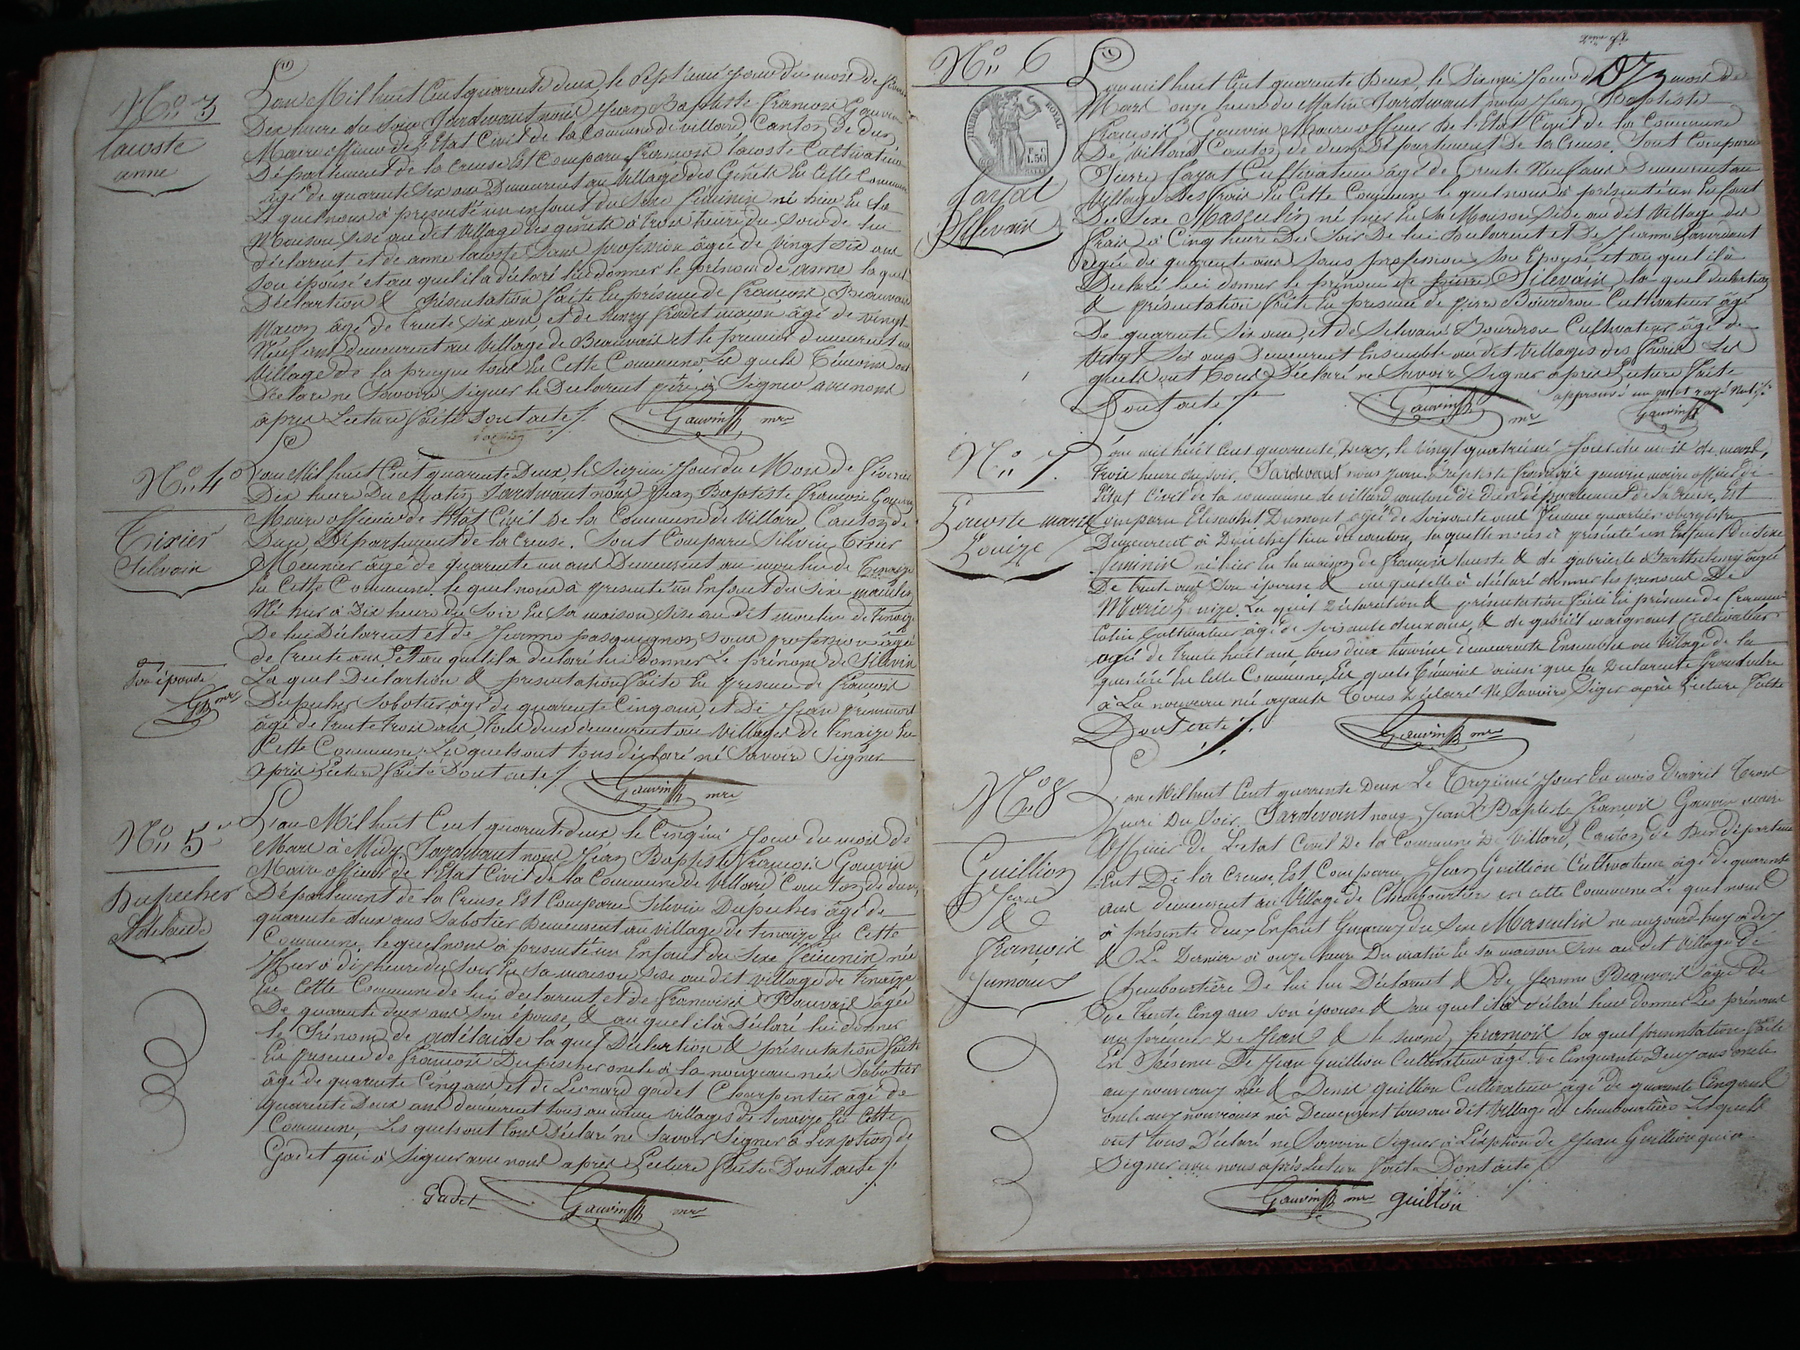 N.o 3
Lacoste
anne
L'an Mil huit Cent quarente deux, le Septiemé Jour du mois de
Dix heure du Soir Pardevant nous Jean Baptiste francois Gauvin
Maire officier de l'Etat Civil de la Commune de villard Canton de dun
Département de la Creuse Est Comparu francois lacoste Cultivateur
âgé de quarente Six ans Demeurent au Village des Genêts En Cette Commune
Le quel nous à presenté un enfant du Sexe féminin né hier En Sa
Maison Sise au dit Village des genêts à trois heure du Soir de lui
déclarent et de anne lacoste Sans profession âgée de vingt Six ans
Son épouse et au quel il à déclaré lui donner le prénom de anne la quel
Déclartion & présentation faite En présence de francois Beauvais
Macon âgé de trente Six ans, et de Gadet macon âgé de vingt
Neuf ans demeurent au Village de Beauvais et le premier demeurent au
Village de la En Cette Commune, Les quels Témoins ont
Déclaré ne Savoir Signer le Declarent père à Signer avec nous
après Lecture faite Dont acte /.
Gauvin mre
N.o 4
Tixier
Silvain
Son épouse
G mre
L'an Mil huit Cent quarente Deux, le Sezieme Jour du Mois de fevrier
Dix heure Du Matin Pardevant nous Jean Baptiste francois Gauvin
Maire officier de l'Etat Civil De la Commune de Villard, Canton de
Dun, Département de la Creuse. Sont Comparu Silvin Tixier
Meunier âgé de quarente un ans Demeurent au moulin de Tinaize
En Cette Commune, le quel nous à presenté un Enfant du Sexe masculin
Né hier à Dix heure du Soir En Sa maison Sise au dit moulin de Tinaize
De lui Déclarent et de Jeanne pasquignon Sans profession âgée
de trente ans, Et au quel il a déclaré lui Donner Le prénom de Silvin
La quel Déclartion & presentation faite En presence de francois
Dupecher Sabotier âgé de quarente Cinq ans, et De Jean
âgé de trente trois ans, tous deux demeurent au Village de tinaize En
Cette Commune, Les quels ont tous déclaré né Savoir Signer
après Lecture faite Dont acte /.
Gauvin mre
N.o 5
Dupecher
Adelaide
L'an Mil huit Cent quarente deux le Cinqieme Jour du mois de
Mars à Midy Pardevant nous Jean Baptiste francois Gauvin
Maire officier de l'Etat Civil de la Commune de Villard Canton de dun,
Département de la Creuse Est Comparu Silvin Dupecher âgé de
quarente deux ans Sabotier Demeurent au village de tinaize En Cette
Commune, le quel nous à presenté un Enfant du Sexe féminin née
Hier à dix heure du Soir En Sa maison Sise au dit village de tinaize
En Cette Commune de lui déclarent, et de francoise Beauvais âgée
De quarente deux ans Son épouse, & au quel il à Déclaré lui donner
le Prénom de adélaide la quel Déclartion & présentation faite
En presence de francois Dupecher oncle à la nouveau née Sabotier
âgé de quarente Cinq ans, et de Léonard gadet Charpentier âgé de
quarente Deux ans demeurent tous au même village de tinaize En Cette
Commune, Les quels ont tous Déclaré ne Savoir Signer à l'exeption de
Gadet qui à Signer avec nous après Lecture faite Dont acte /.
Gadet Gauvin mre
N.o 6
TIMBRE ROYAL
1.50
fayat
Silvain
L'an mil huit Cent quarente Deux, le Sixieme Jour du mois de
Mars onze heure du Matin Pardevant nous Jean Baptiste
Francois Gauvin Maire officier de l'Etat Civil de la Commune
De Villard Canton de dun Département De la Creuse. Sont Comparu
Pierre fayat Cultivateur âgé de trente Neuf ans Demeurent au
Village Des frais En Cette Commune le quel nous à présenté un Enfant
Du Sexe Masculin né hier En Sa Maison Sise au dit Village des
frais à Cinq heure Du Soir De lui Déclarent et de Jeanne
agée de quarente ans Sans profession Son Epouse et au quel il à
Déclaré lui donner le prénom de Silevain, la quel déclartion
& présentation faite En presence de pierre Bourdron Cultivateur âgé
De quarente Six ans, et de Silvain Bourdron Cultivateur âgé de
Vingt Six ans Demeurent Ensemble au dit Villages des frais Les
quels ont tous Déclaré ne Savoir Signer après Lecture faite
Dont acte /.
approuvé un mot rayé Nul /.
Gauvin mre Gauvin
N.o 7
Lacoste marie
Louize
L'an mil huit Cent quarente Deux, le vingt quatrieme Jour du mois de mars,
trois heure du soir, Pardevant nous Jean Baptiste francois gauvin maire officier de
l'état Civil de la commune de villard canton de dun département de la creuse, Est
Comparu Elisabet Dumont agée de Soixante ans
Demeurent à Dun chef lieu du canton, la quelle nous à présenté un Enfant Du Sexe
féminin né hier En la maison de francois lacoste & de gabrielle Barthelemy agée
De trente ans Son épouse & au quel elle à déclaré donner les prenoms De
Marie Louize. La quel Déclaration & présentation faite En présence de francois
Cultivateur âgé de Soixante deux ans, & de gabriel maignant Cultivateur
agé de trente huit ans tous deux témoins demeurents Ensembles au Village de la
En Cette Commune, Les quels Témoins ainsi que la Déclarente
à La nouveau née ayants Tous Déclaré Ne Savoir Signer après Lecture faite
Dont acte /.
Gauvin mre
N.o 8
Guillion
Jean
&
francois
Jumaux
L'an Mil huit Cent quarente Deux Le Trezieme Jour Du mois D'avril Trois
heure Du Soir, Pardevant nous Jean Baptiste francois Gauvin maire
Officier de l'etat Civil De la Commune De Villard, Canton de Dun départem
Ent De la Creuse, Est Comparu Jean Guillion Cultivateur âgé de quarente
ans demeurent au Village de Chamboutière en cette Commune Le quel nous
à présenté deux Enfant Gumaux du Sexe Masculin né aujourd'huy à dix
& Le Dernier à onze heure Du matin En Sa maison Sise au dit Village De
Chamboutière De lui Déclarent & De Jeanne Beauvais âgée De
De Trente Cinq ans Son épouse & au quel il à déclaré leur donner Les prénoms
au prémier De Jean & le second, francois la quel présentation faite
En Présence De Jean Guillion Cultivateur âgé de Cinquante Deux ans oncle
aux nouveaux née & Denis guillion Cultivateur âgé de quarente Cinq ans
oncle aux nouveaux née Demeurent tous au dit Village de chamboutière Les quels
ont tous Déclaré ne Savoir Signer à L'exeption de Jean Guillion qui a
Signer avec nous après Lecture faite Dont acte /.
Gauvin mre guillion